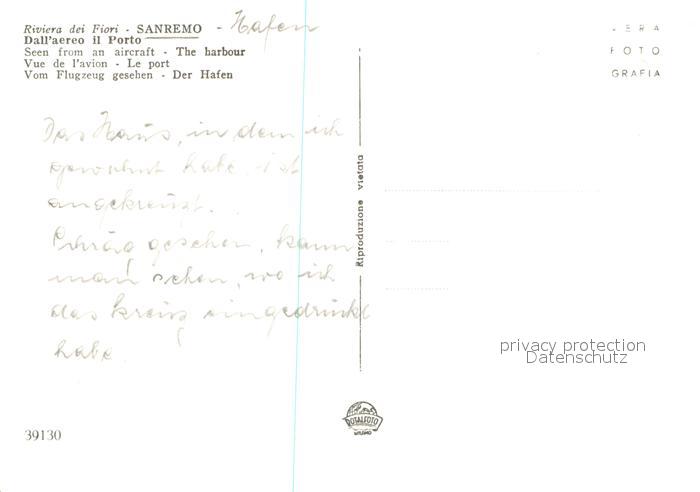 Riviera dei Fiori - SANREMO - Hafen
Dall'aereo il Porto
Seen from an aircraft - The harbour
Vue de l'avion - Le port
Vom Flugzeug gesehen - Der Hafen
VERA
FOTO
GRAFIA
Das Haus, in dem ich
gewohnt habe, ist
angekreuzt.
Schräg gesehen, kann
man sehen, wo ich
das Kreuz eingedrückt
habe.
Riproduzione vietata
privacy protection
Datenschutz
ROTALFOTO
MILANO
39130